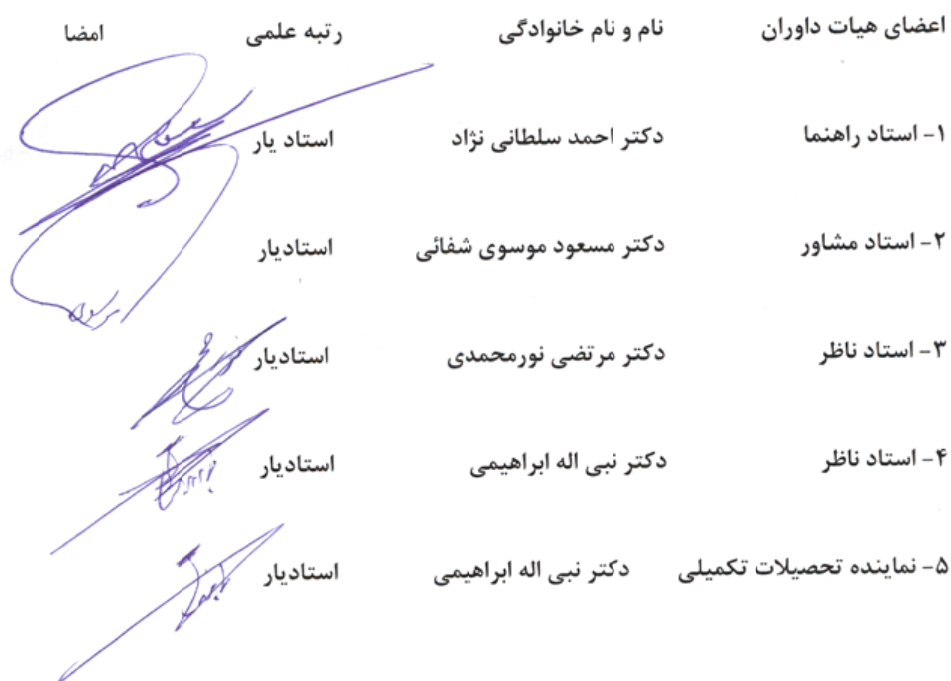 اعضای هیات داوران نام و نام خانوادگی رتبه علمی امضا
۱- استاد راهنما دکتر احمد سلطانی نژاد استاد یار
۲- استاد مشاور دکتر مسعود موسوی شفائی استادیار
۳- استاد ناظر دکتر مرتضی نورمحمدی استادیار
۴- استاد ناظر دکتر نبی اله ابراهیمی استادیار
۵- نماینده تحصیلات تکمیلی دکتر نبی اله ابراهیمی استادیار